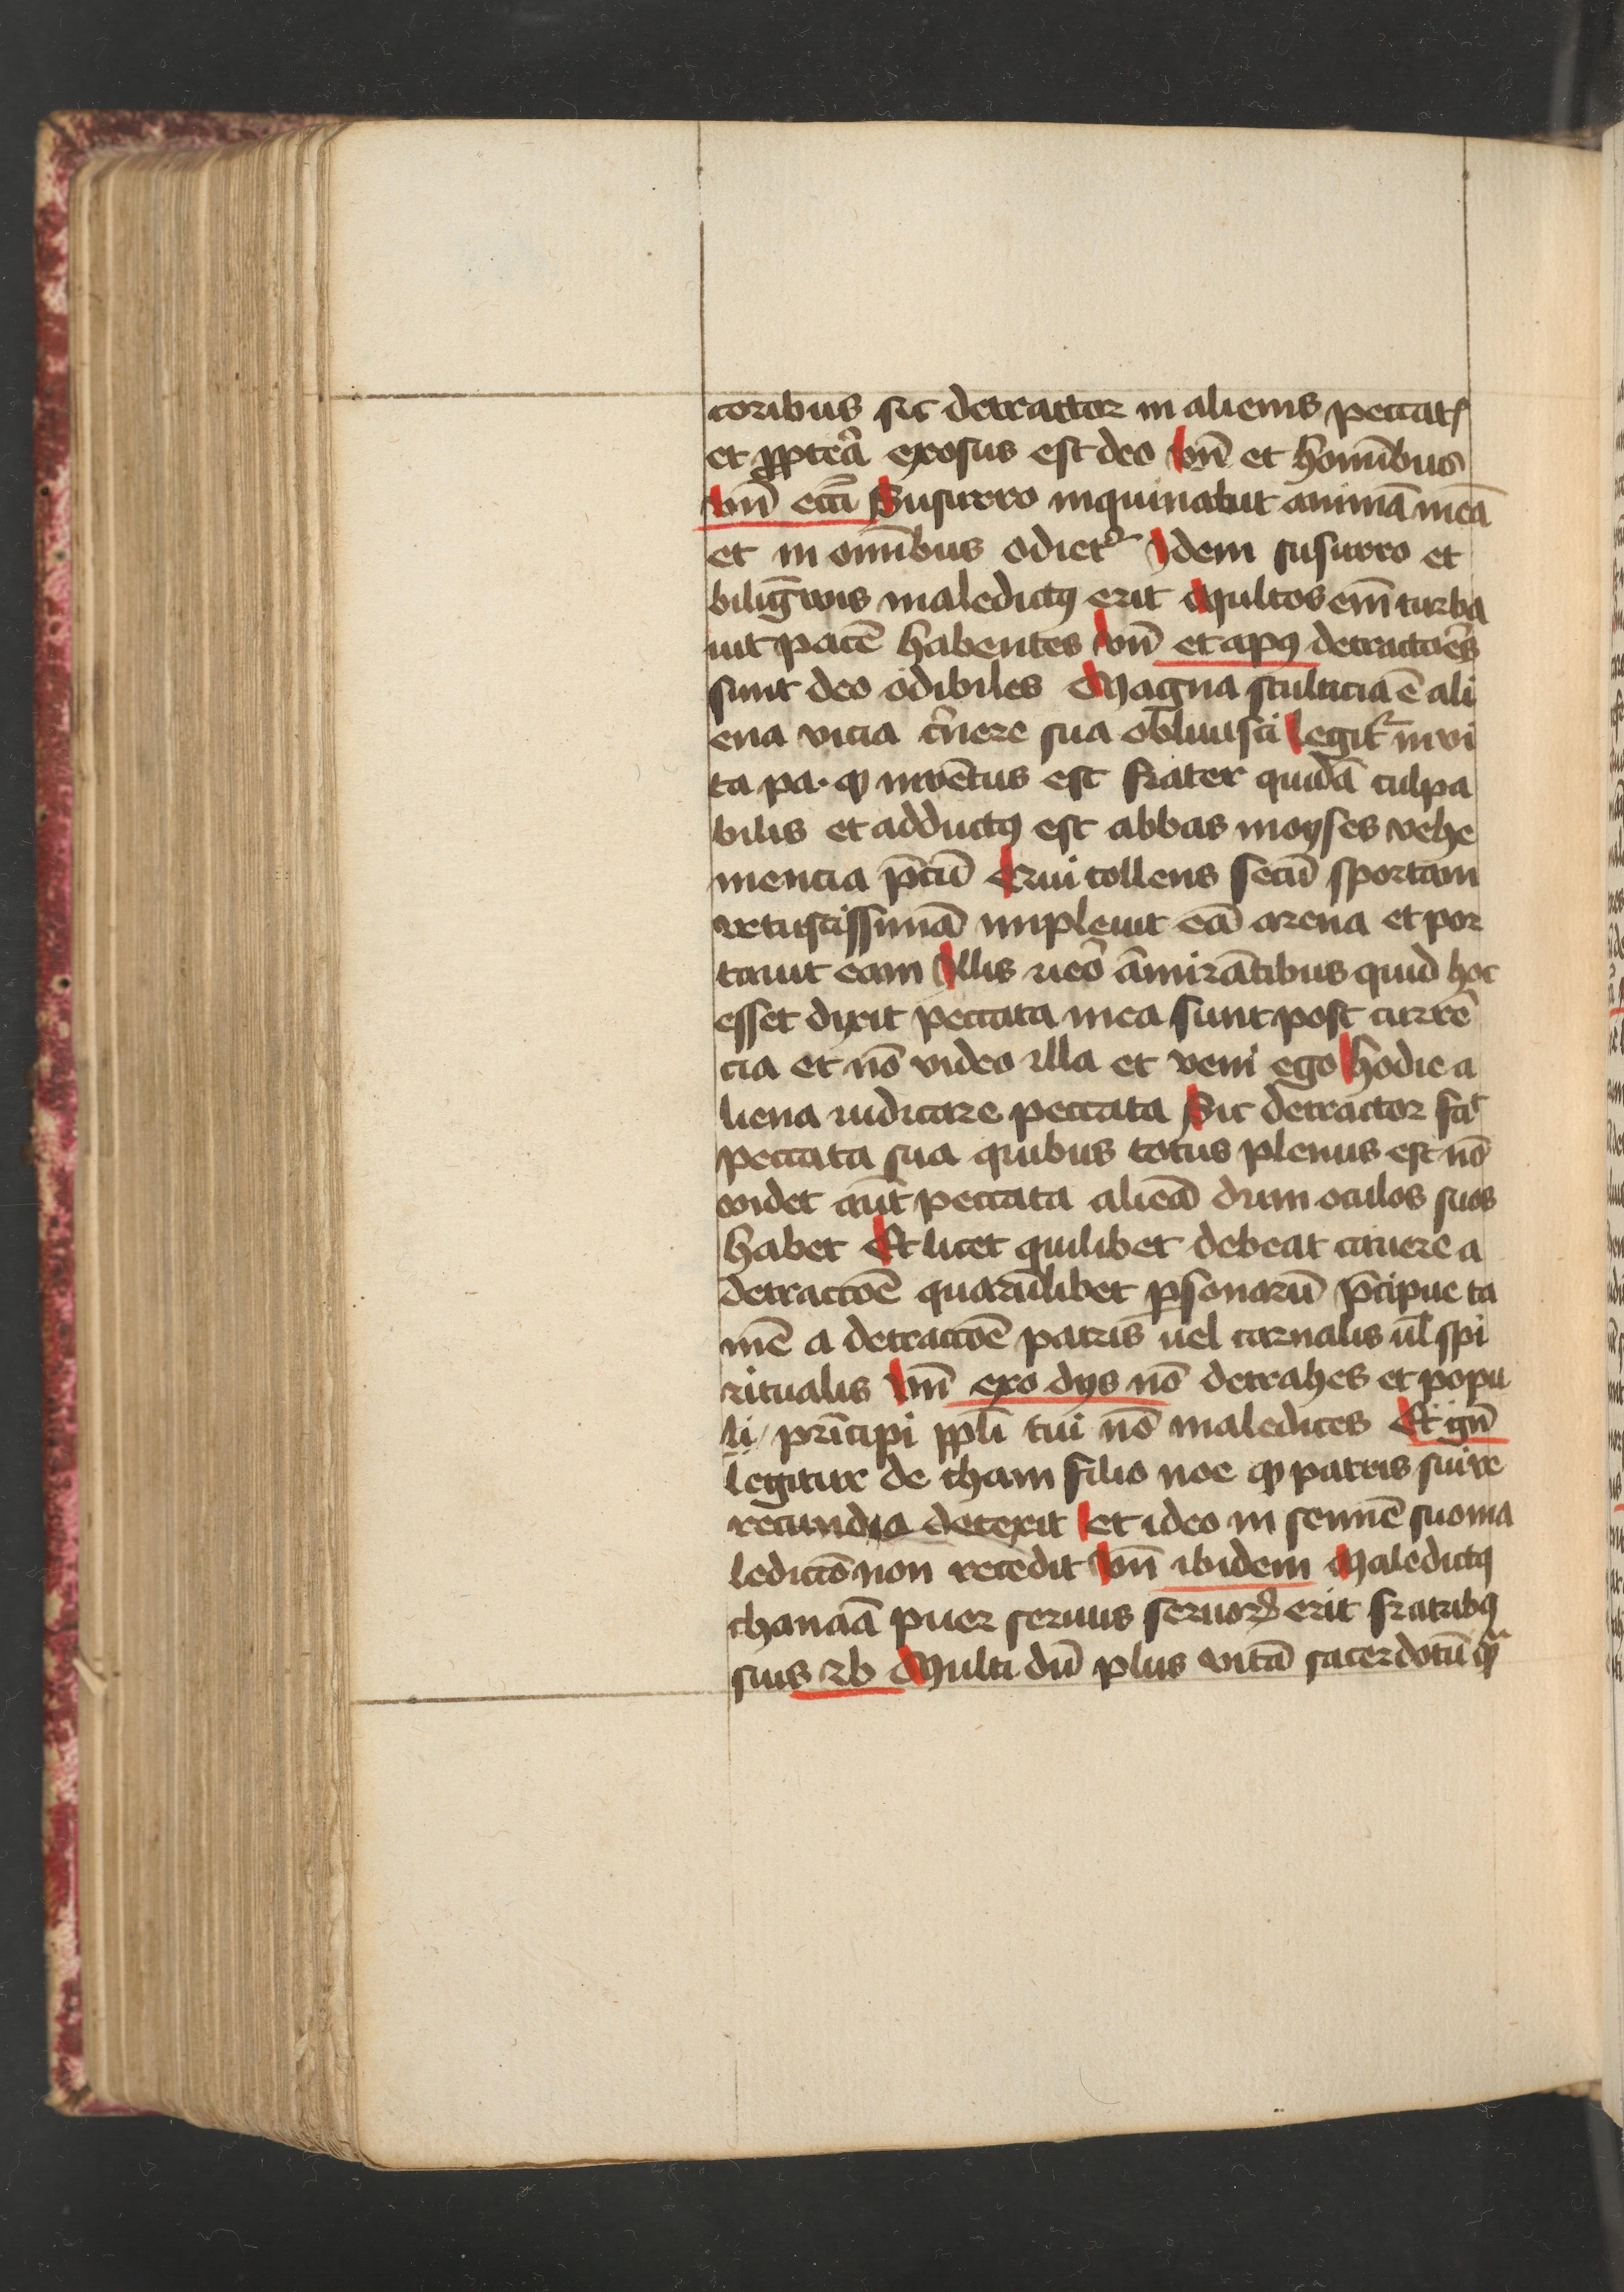 coribus sic detractor in alienis peccatꝭ
et ꝓpteā exosus est deo vn̄ et homībus
vn̄ ecci Susurro inquinabit animā meā
et in omībus odietᷣ Idem susurro et
biling̅wis maledictꝯ erit Multos em̄ turba
uit pacē habentes vn̄ et apꝯ detractoēs
sunt deo odibiles Magna stulticia ē ali
ena vicia cͬnere sua obliuisci legitᷣ in vi
ta pa· ꝙ inuētus est frater quidā culpa
bilis et adductꝯ est abbas moyses vehe
mencia p̄cū Qui tollens secū sportam
vetustissimā impleuit eā arena et por
tauit eam Illis ueō āmirātibus quid hoc
esset dixit peccata mea sunt post currē
cia et nō video illa et veni ego hodie a
liena iudicare peccata Sic detractor fac̄
peccata sua quibus totus plenus est nō
videt aūt peccata alieā dum oculos suos
habet Et licet quilibet debeat cauere a
detractōē quarūlibet ꝑsonarū p̄cipue ta
mē a detractōē patris uel carnalis ul̄ spi
ritualis vn̄ exo dijs nō detrahes et popu
li principi ppl̄i tui nō maledices Et gn̄
legitur de cham filio noe ꝙ patris sui ve
recundia detexit et ideo in semīē suo ma
ledictō non recedit vn̄ ibidem Maledictꝯ
chanaā puer seruus seruoꝝ erit fratribꝯ
suis rb Multi dū plus vitā sacerdotū qͣ